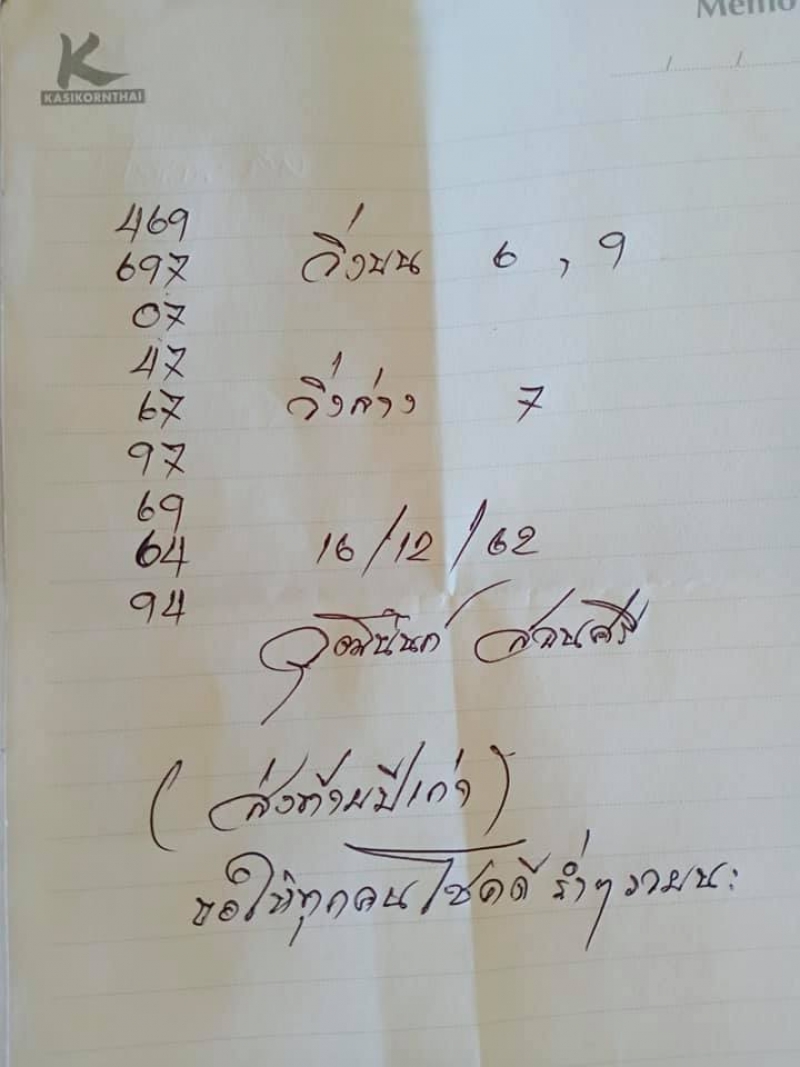 Memo
K
KASIKORNTHAI
/ /
469
697
วิ่งบน 6 , 9
07
47
67
วิ่งล่าง 7
97
69
64
16/12/62
94
วุฒินันท์ สอนศรี
(ส่งท้ายปีเก่า)
ขอให้ทุกคนโชคดี ร่ำๆ รวยนะ